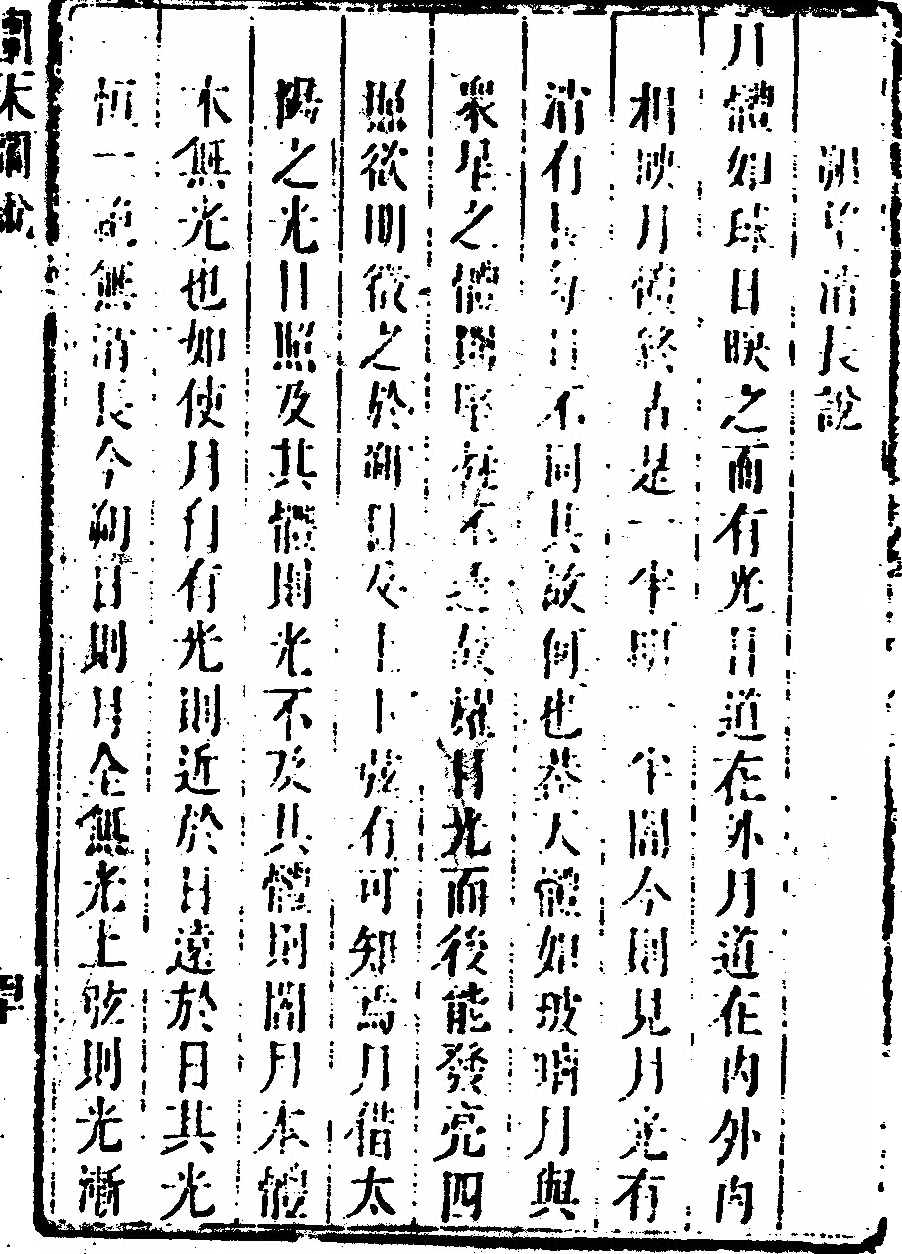 朔望消長說
月體如球日映之而有光日道在外月道在內外內
相映月體終古是一半明一半闇今則見月光有
消有長每日不同其故何也葢天體如玻瓈月與
衆星之體闇堅凝不透故耀日光而後能發亮四
照欲明徵之於朔日及上下弦有可知焉月借太
陽之光日照及其體則光不及其體則闇月本體
本無光也如使月自有光則近於日遠於日其光
恒一 無消長今朔日則月全無光上弦則光漸